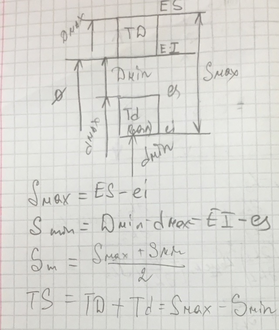 ES
Dmax
TD
EI
Dmin
Smax
es
dmax
Td
ei
dmin
Smax = ES - ei
Smin = Dmin - dmax = EI - es
Sm = Smax + Smin / 2
TS = TD + Td = Smax - Smin